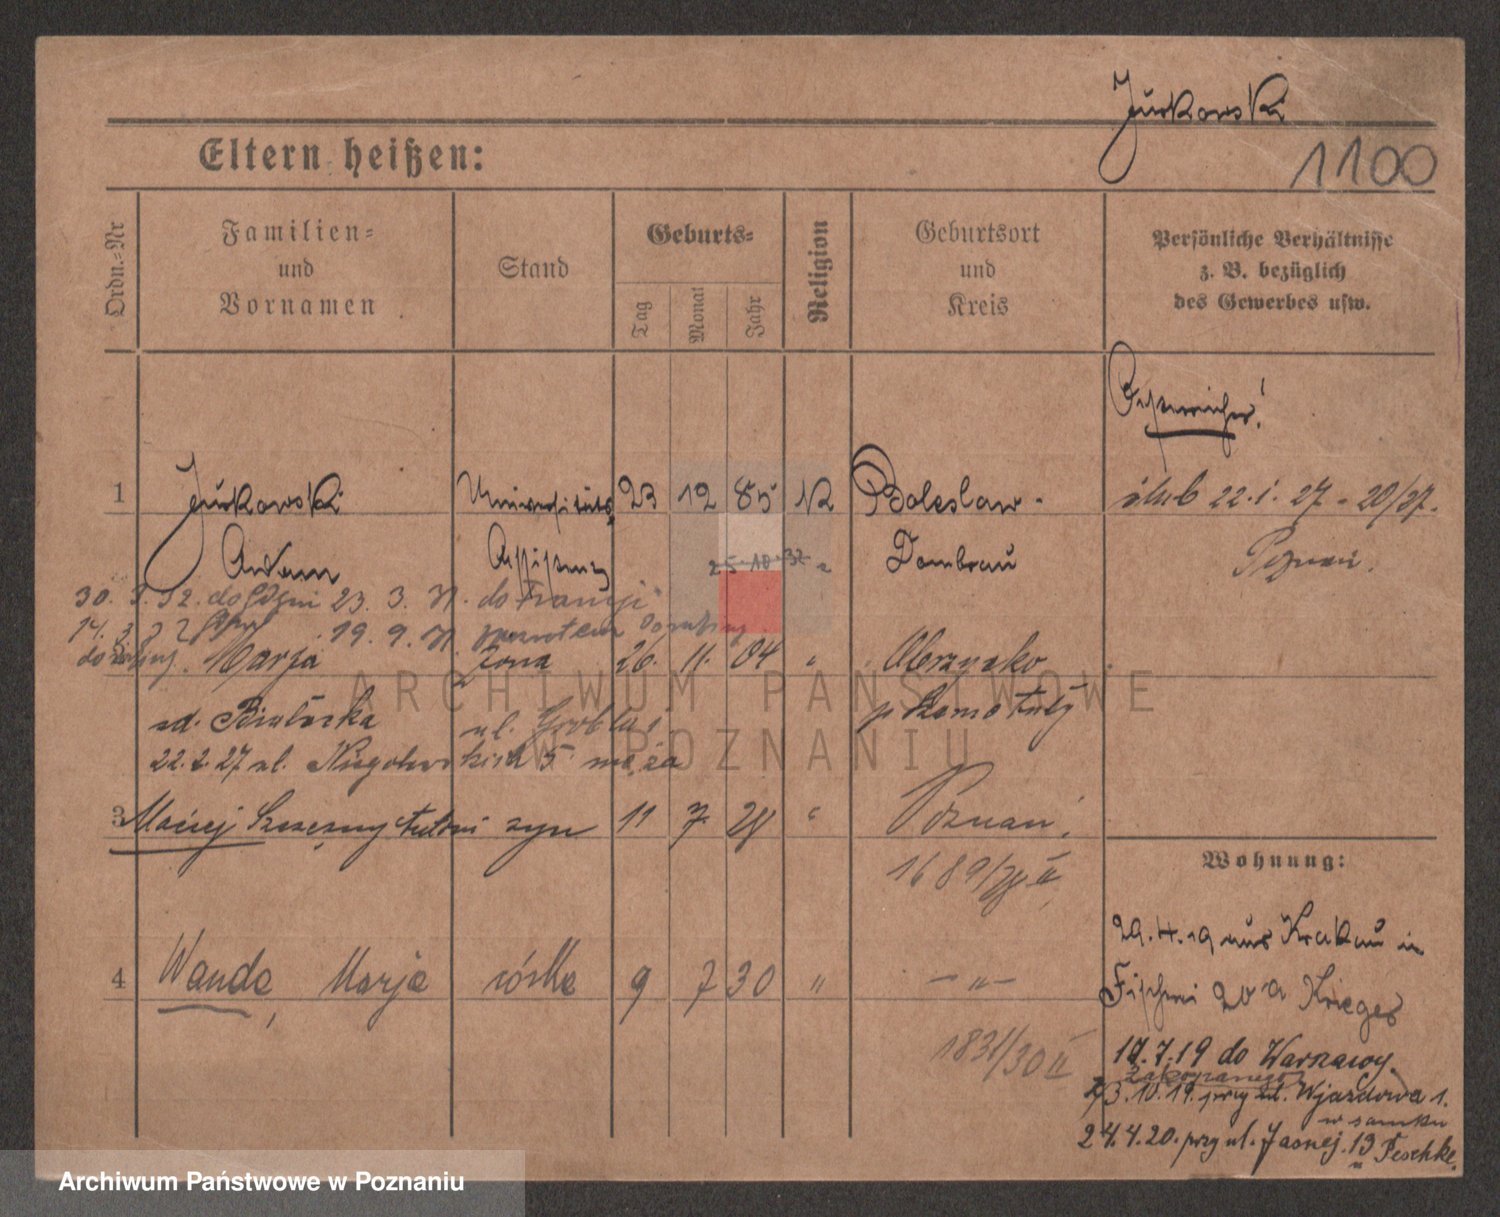 Jurkowski
1100
Eltern heißen:
Ordn.-Nr
Familien-
und
Vornamen
Stand
Geburts-
Tag
Monat
Jahr
Religion
Geburtsort
und
Kreis
Persönliche Verhältnisse
z. B. bezüglich
des Gewerbes usw.
Österreicher!
1 Jurkowski Universitäts 23 12 85 K Boleslaw- ślub 22.1.27 - 20/27.
Adam Assistent Dombrau Poznań.
25.10.32
30. 3. 32. do Gdyni 23. 3. 31. do Francji
14. 3. 19. 9. 31.
Marja żona 26. 11. 04 " Obrzycko
p Szamotuły
ul. Grobla 1
22.2.27 ul. 5 męża
3 Maciej Szczęsny Antoni syn 11 7 28 " Poznań.
1689/28 II
Wohnung:
29.4.19 aus Krakau in
Fischerei 20a Krieger
4 Wanda, Marja córka 9 7 30 " -"-
1831/30 II
17.7.19 do Warszawy.
Zakopanego
23.10.19. przy ul. Wjazdowa 1.
w zamku
24.4.20. przy ul. Jasnej. 13 Peschke.
ARCHIWUM PAŃSTWOWE
W POZNANIU
Archiwum Państwowe w Poznaniu